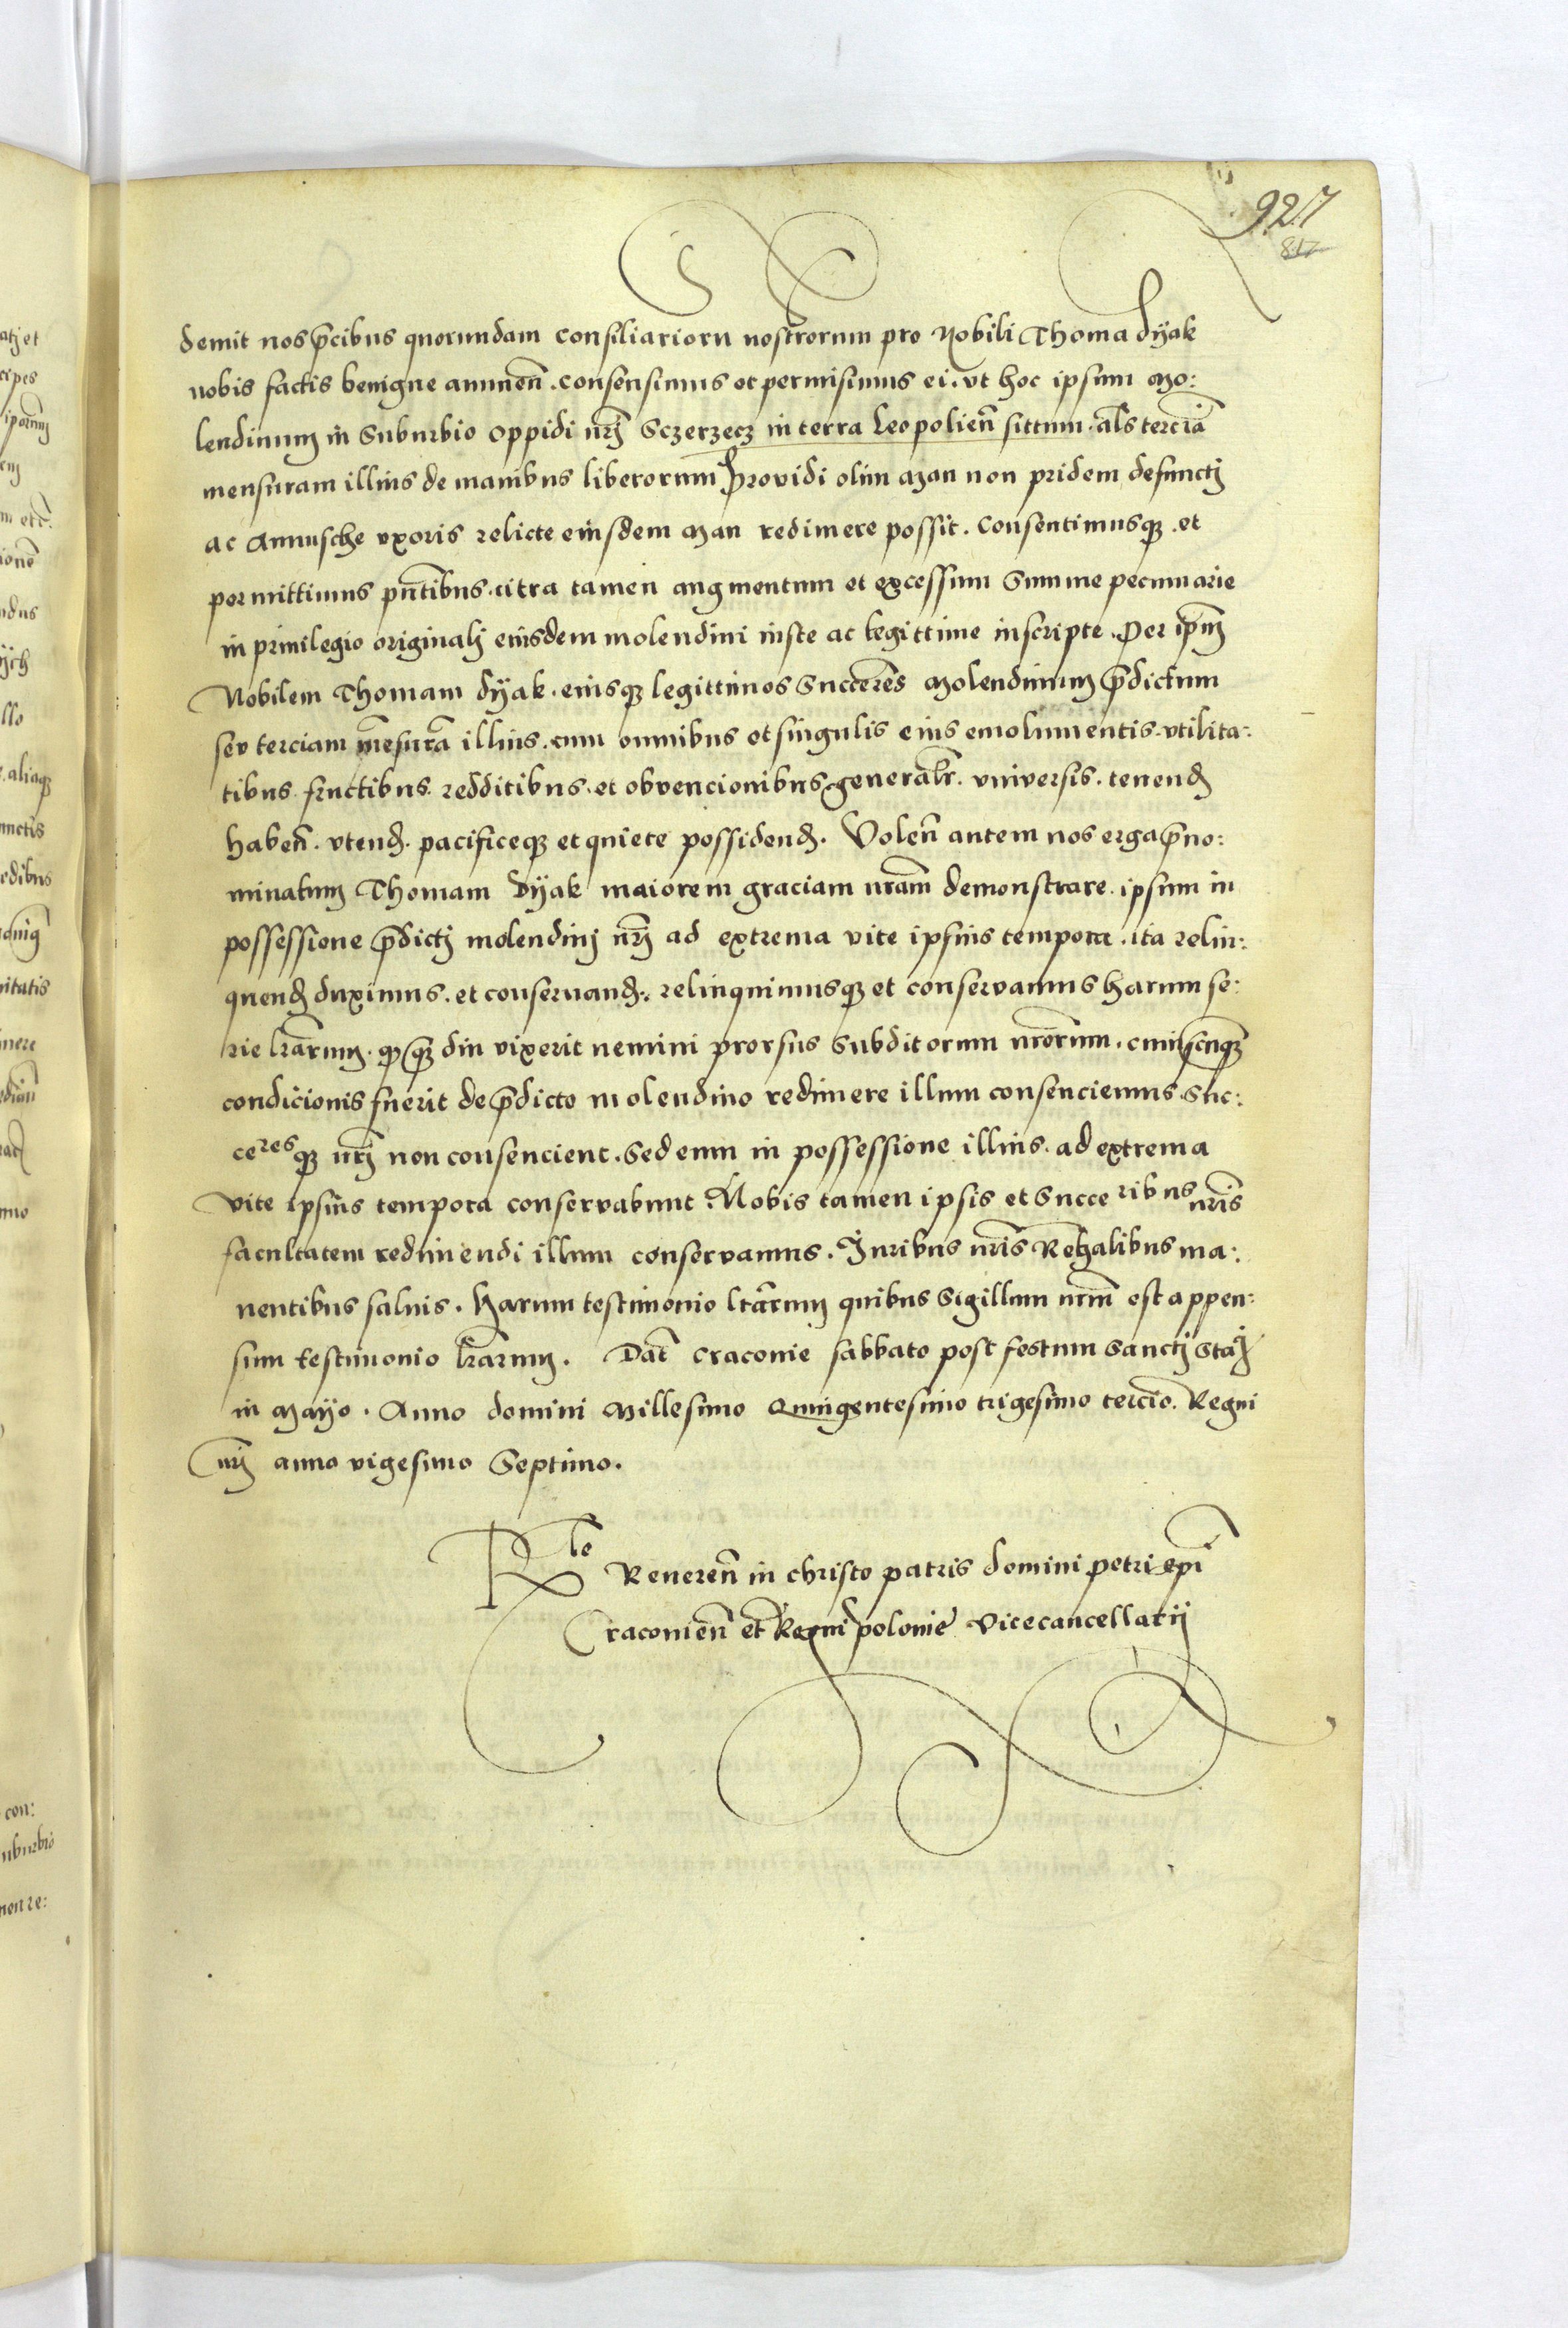 927
817
demit nos p̄cibus quorundam consiliarioru nostrorum pro Nobili Thoma Dÿak
nobis factis benigne annueñ. consensimus et permisimus ei. vt hoc ipsum Mo:
lendinum in Suburbio oppidi nr̄j Sczerzecz in terra Leopolieñ sittum. als terciā
mensuram illius de manibus liberorum Providi olim Man non pridem defunctj
ac Annusche vxoris relicte eiusdem Man redimere possit. Consentimusqz. et
permittimus pn̄tibus. citra tamen augmentum et excessum Summe pecuniarie
in priuilegio originalj eiusdem molendini iuste ac legittime inscripte. Per ip̄m
Nobilem Thomam Dÿak. eiusqz legittimos Succēres Molendinum p̄dictum
seu terciam mēsurā illius. cum omnibus et singulis eius emolumentis. vtilita:
tibus. fructibus. redditibus. et obvencionibus generalr̄. vniversis. tenend
habeñ. vtend. pacificeqz et quiete possidend. Voleñ autem nos erga p̄no:
minatum Thomam Dÿak maiorem graciam nr̄am demonstrare. ipsum in
possessione p̄dictj molendinj nr̄j ad extrema vite ipsius tempora. ita relin:
quend duximus. et conseruand. relinquimusqz et conservamus harum se:
rie lr̄arum. qp qz diu vixerit nemini prorsus Subditorum nr̄orum. cuiuscūqz
condicionis fuerit de p̄dicto molendino redimere illum consenciemus. Suc:
ceresqz nr̄j non consencient. Sed eum in possessione illius. ad extrema
vite ipsius tempora conservabunt. Nobis tamen ipsis et Succeribus nr̄is
facultatem redimendi illum conservamus. Iuribus nr̄is Regalibus ma:
nentibus saluis. Harum testimonio lr̄arum quibus Sigillum nr̄m est appen:
sum testimonio lr̄arum. Dat̄ Cracovie sabbato post festum Sanctj Staj
in Mayo. Anno domini Millesimo Quingentesimo trigesimo tercio. Regni
nr̄j anno vigesimo Septimo.
Rle Reuereñ in christo patris domini petri ep̄i
Cracovieñ et Regni polonie Vicecancellarij